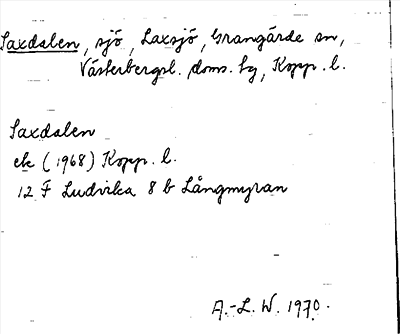 Saxdalen, sjö, Laxsjö, Grangärde sn,
Västerbergsl. doms. hg, Kopp. l.
Saxdalen
ek (1968) Kopp. l.
12 F Ludvika 8 b Långmyran
A.-L. W. 1970.